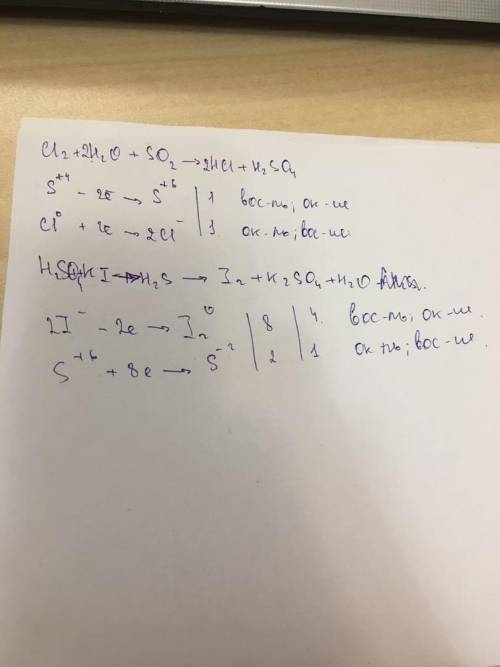 Cl₂ + 2H₂O + SO₂ → 2HCl + H₂SO₄
S⁺⁴ - 2e → S⁺⁶ | 1 вос-ль; ок-ие
Cl⁰ + 2e → 2Cl⁻ | 1 ок-ль; вос-ие
H₂SO₄ + KI → H₂S → I₂ + K₂SO₄ + H₂O
2I⁻ - 2e → I₂⁰ | 8 | 4 вос-ль, ок-ие.
S⁺⁶ + 8e → S⁻² | 2 | 1 ок-ль; вос-ие